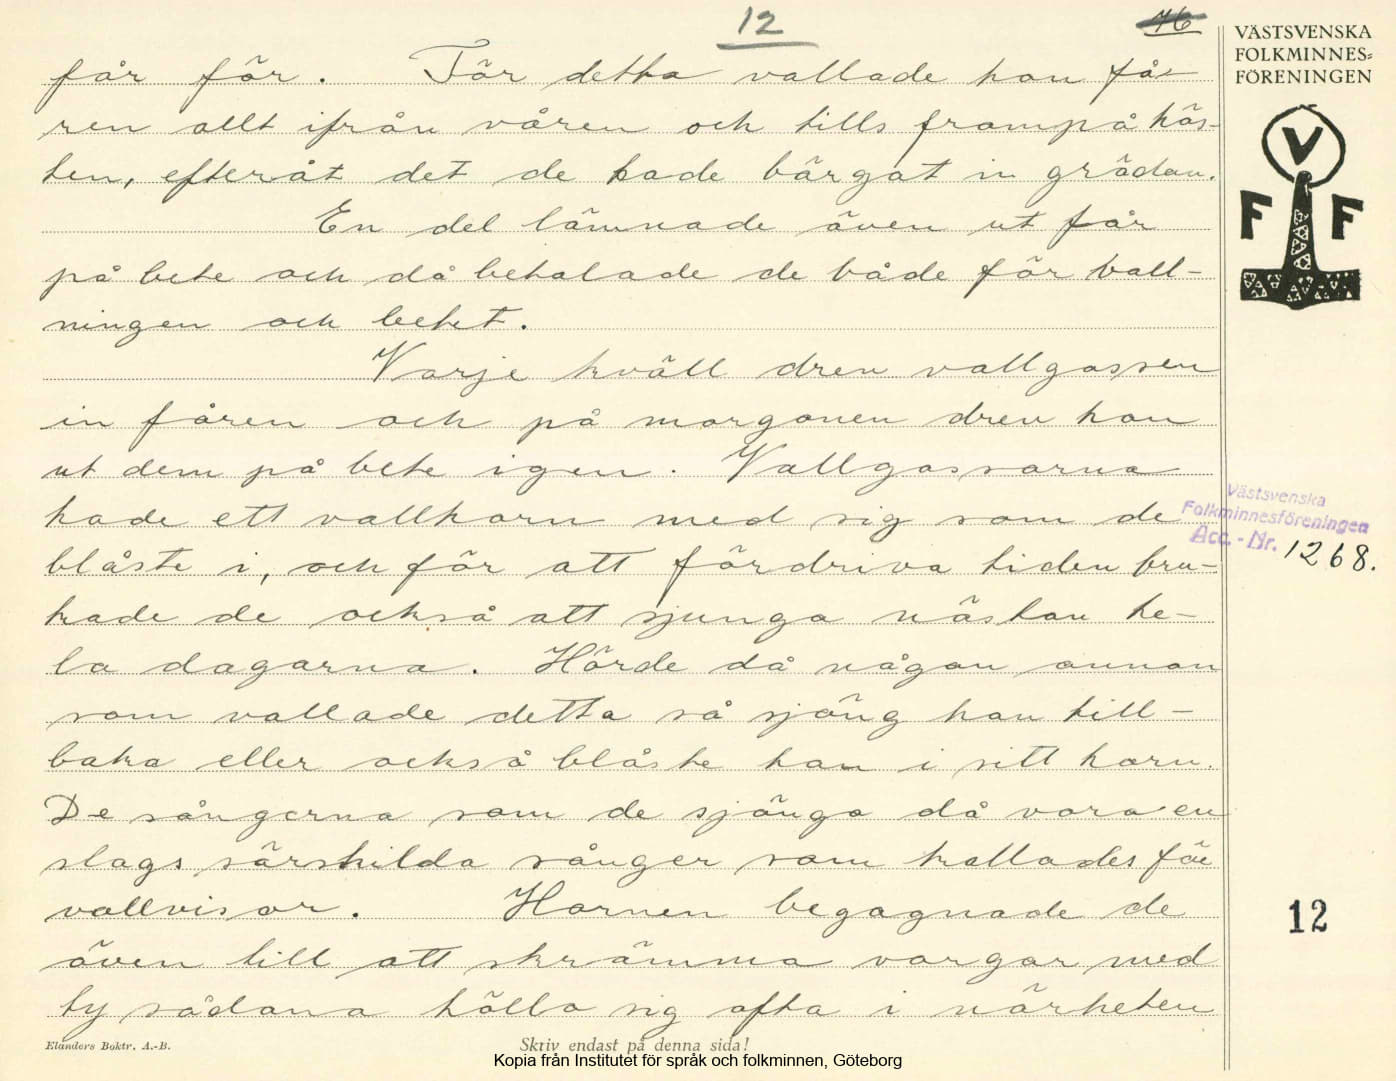 12
76
VÄSTSVENSKA
FOLKMINNES=
FÖRENINGEN
V
F F
får för. För detta vallade han få-
ren allt ifrån våren och tills frampå hös-
ten, efteråt det de hade bärgat in grödan.
En del lämnade även ut får
på bete och då betalade de både för vall-
ningen och betet.
Varje kväll drev vallgossen
in fåren och på morgonen drev han
ut dem på bete igen. Vallgossarna
hade ett vallhorn med sig som de
blåste i, och för att fördriva tiden bru-
kade de också att sjunga nästan he-
la dagarna. Hörde då någon annan
som vallade detta så sjöng han till-
baka eller också blåste han i sitt horn.
De sångerna som de sjöngo då voro en
slags särskilda sånger som kallades för
vallvisor. Hornen begagnade de
även till att skrämma vargar med
ty sådana höllo sig ofta i närheten
Västsvenska
Folkminnesföreningen
Acc.-Nr. 1268.
12
Elanders Boktr. A.-B.
Skriv endast på denna sida!
Kopia från Institutet för språk och folkminnen, Göteborg